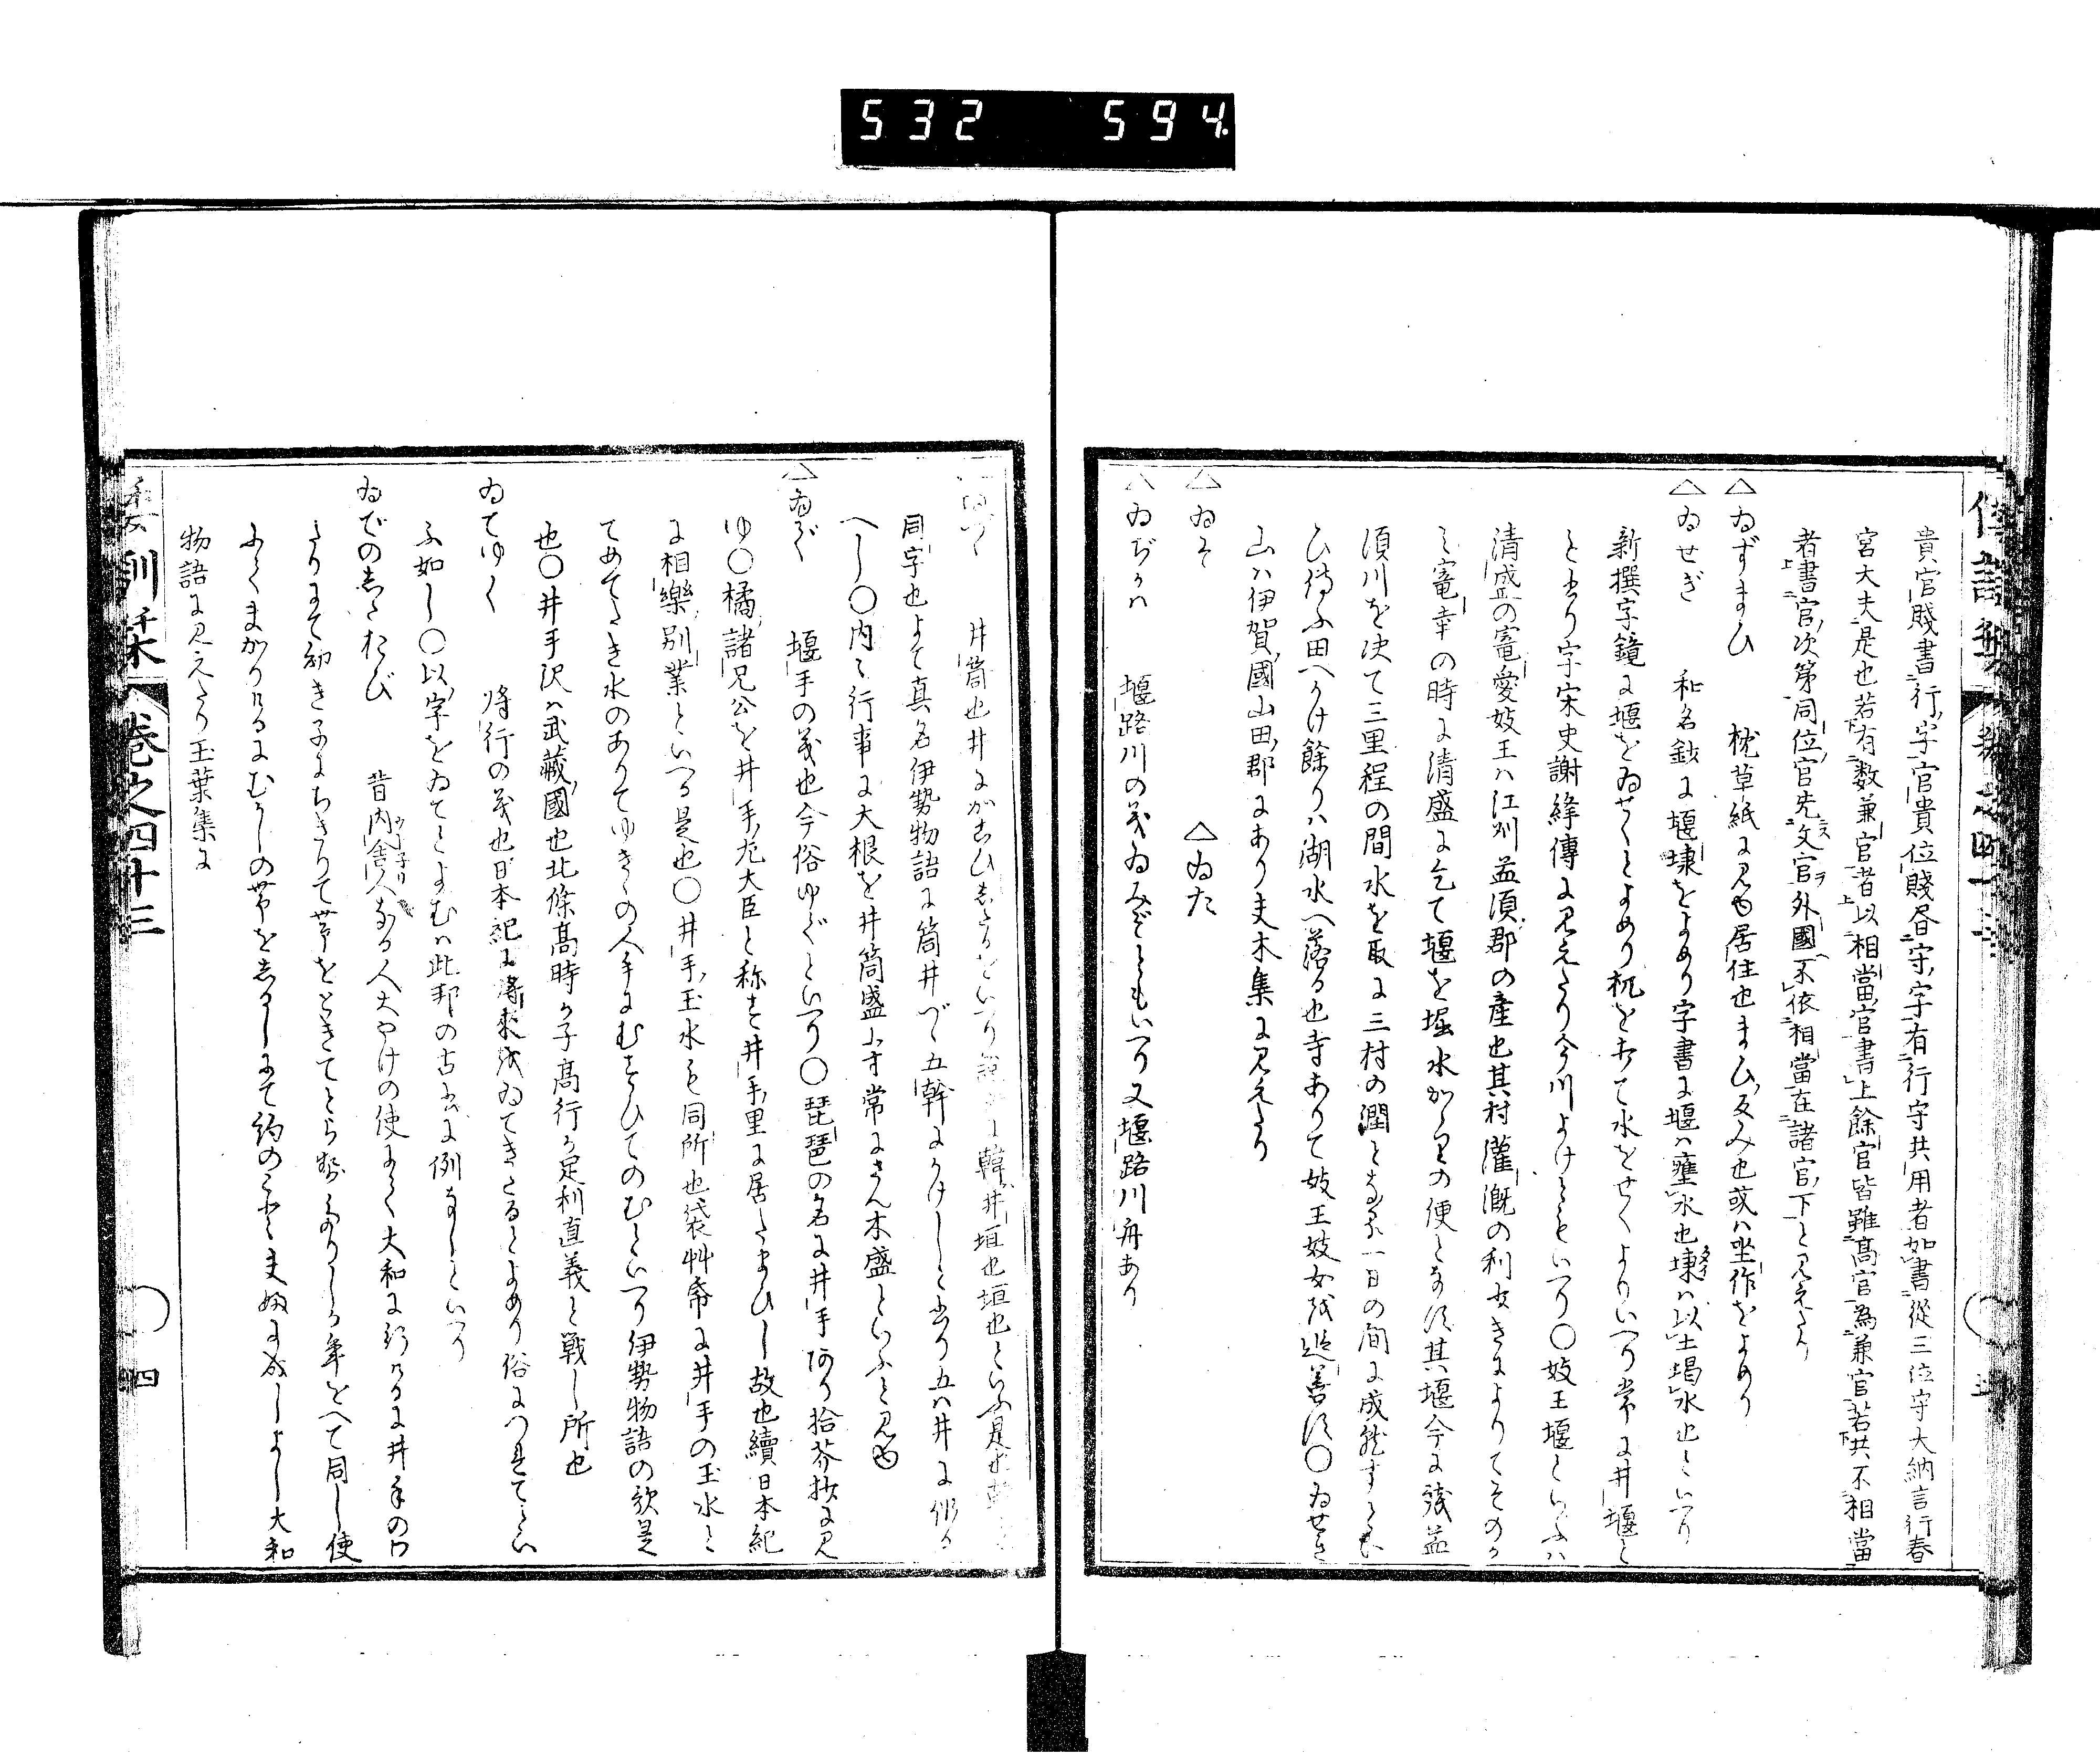 532 594.
貴官賤書行字官貴位賤昼守字有行守共用者如書從三位守大納言行春
宮大夫是也若有数兼官者以相當官書上餘官皆雖高官為兼官若共不相當
者書官次第同位官先文官外國不依相當在諸官下と見えたり
△ゐずまひ 枕草紙に見ゆ居住也まひ反み也或は坐作をよめり
△ゐせぎ 和名鈔に堰埭をよめり字書に堰は壅水也埭は以土堨水也といへり
新撰字鏡に堰をゐせくとよめり杭を打て水をせくよりいへり常に井堰と
と書り字宋史謝絳傳に見えたり今川よけともいへり〇妓王堰といふは
清盛の寵愛妓王は江州益須郡の産也其村灌漑の利なきによりてそのか
み寵幸の時に清盛に乞て堰を堀水がゝりの便となす其堰今に残益
須川を决て三里程の間水を取に三村の潤となる一日の間に成就すとも
ひ傳ふ田へかけ餘りは湖水へ落る也寺ありて妓王妓女を追善す〇ゐせき
山は伊賀國山田郡にあり夫木集に見えたり
△ゐそ △ゐた
△ゐぢかは 堰路川の義ゐみぞともいへり又堰路川舟あり
倭訓栞 卷之四十三
井筒也井にがこひしたるをいへり 韓井垣也垣也といふ是也
同字也よて真名伊勢物語に筒井づゝ五幹にかけしと書り五は井に作る
へし〇内々行事に大根を井筒盛小寸常にさん木盛といふと見ゆ
△ゐで 堰手の義也今俗ゆでといへり〇琵琶の名に井手あり拾芥抄に見
ゆ〇橘諸兄公を井手左大臣と称す井手里に居たまひし故也續日本紀
に相樂別業といへる是也〇井手玉水も同所也袋艸帋に井手の玉水と
てめでたき水のありてゆきゝの人手にむすびてのむといへり伊勢物語の歌是
也〇井手沢は武藏國也北條高時か子高行か足利直義と戦し所也
ゐてゆく 将行の義也日本紀に将來をゐてきたるとよめり俗につれてとい
ふ如し〇以字をゐてとよむは此邦の古書に例なしといへり
ゐでのしたおび 昔内舎人なる人大やけの使にて大和に行けるに井手のわ
たりにて幼き子にちぎりて帯をときてとらせたりしか年をへて同し使
にてまかりけるにむかしの帯をしるしにて約のごとく夫婦に成しよし大和
物語に見えたり玉葉集に
倭訓栞 卷之四十三 四